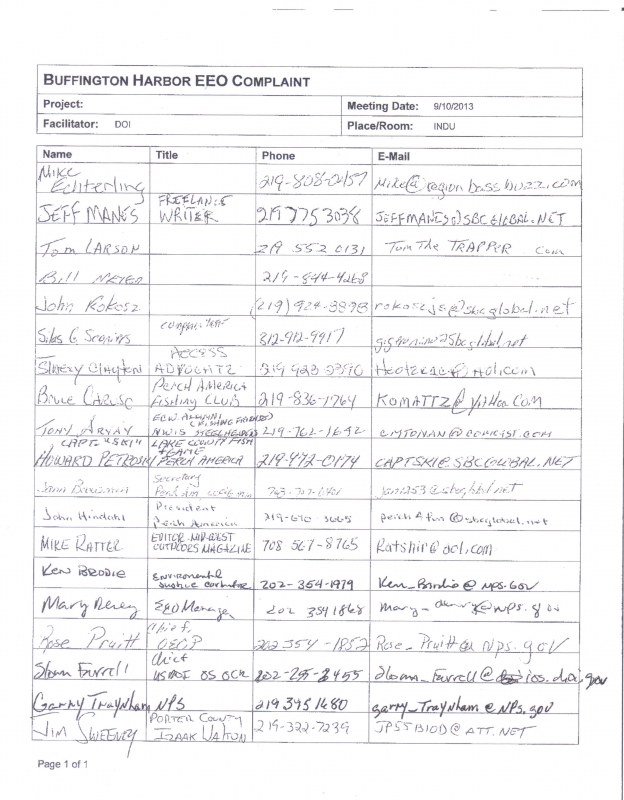 BUFFINGTON HARBOR EEO COMPLAINT
Project: Meeting Date: 9/10/2013
Facilitator: DOI Place/Room: INDU
Name Title Phone E-Mail
MIKE Echterling 219-808-0457 Mike@regionbassbuzz.com
JEFF MANES FREELANCE WRITER 219 775 3038 JEFFMANES@SBCGLOBAL.NET
Tom LARSON 219 552 0131 Tom The TRAPPER com
Bill 219-844-4268
John Kokosz (219) 924-3898 @sbcglobal.net
Silas G. 312-912-9917 @sbcglobal.net
Clayton ACCESS ADVOCATE 219 923
Bruce CARUSO Perch America Fishing CLUB 219-836-1764 KOMATTZ@YAHOO.COM
TONY 219-762-1642 CMTONAN@COMCAST.COM
CAPT. "SKI" HOWARD PETROSKI LAKE COUNTY FISH + GAME PERCH AMERICA 219-472-0174 CAPTSKI@SBCGLOBAL.NET
Secretary @sbcglobal.net
John Hindahl President Perch America 219-670 3665 perch4fun@sbcglobal.net
MIKE RATTER EDITOR MIDWEST OUTDOORS MAGAZINE 708 567-8765 Ratshir@aol.com
KEN BRODIE Environmental Justice 202-354-1979 Ken_Brodie@NPS.GOV
Mary EEO Manager 202 354 1868 mary_ @NPS.gov
Rose Pruitt Chief, 202 354-1852 Rose_Pruitt@NPS.gov
Sloan Farrell Chief USDOI OS OCR 202-255-2455 Sloan_Farrell@ios.doi.gov
Garry Traynham NPS 219 395 1680 garry_Traynham@NPS.gov
JIM SWEENEY PORTER COUNTY IZAAK WALTON 219-322-7239 JPSSBIOD@ATT.NET
Page 1 of 1